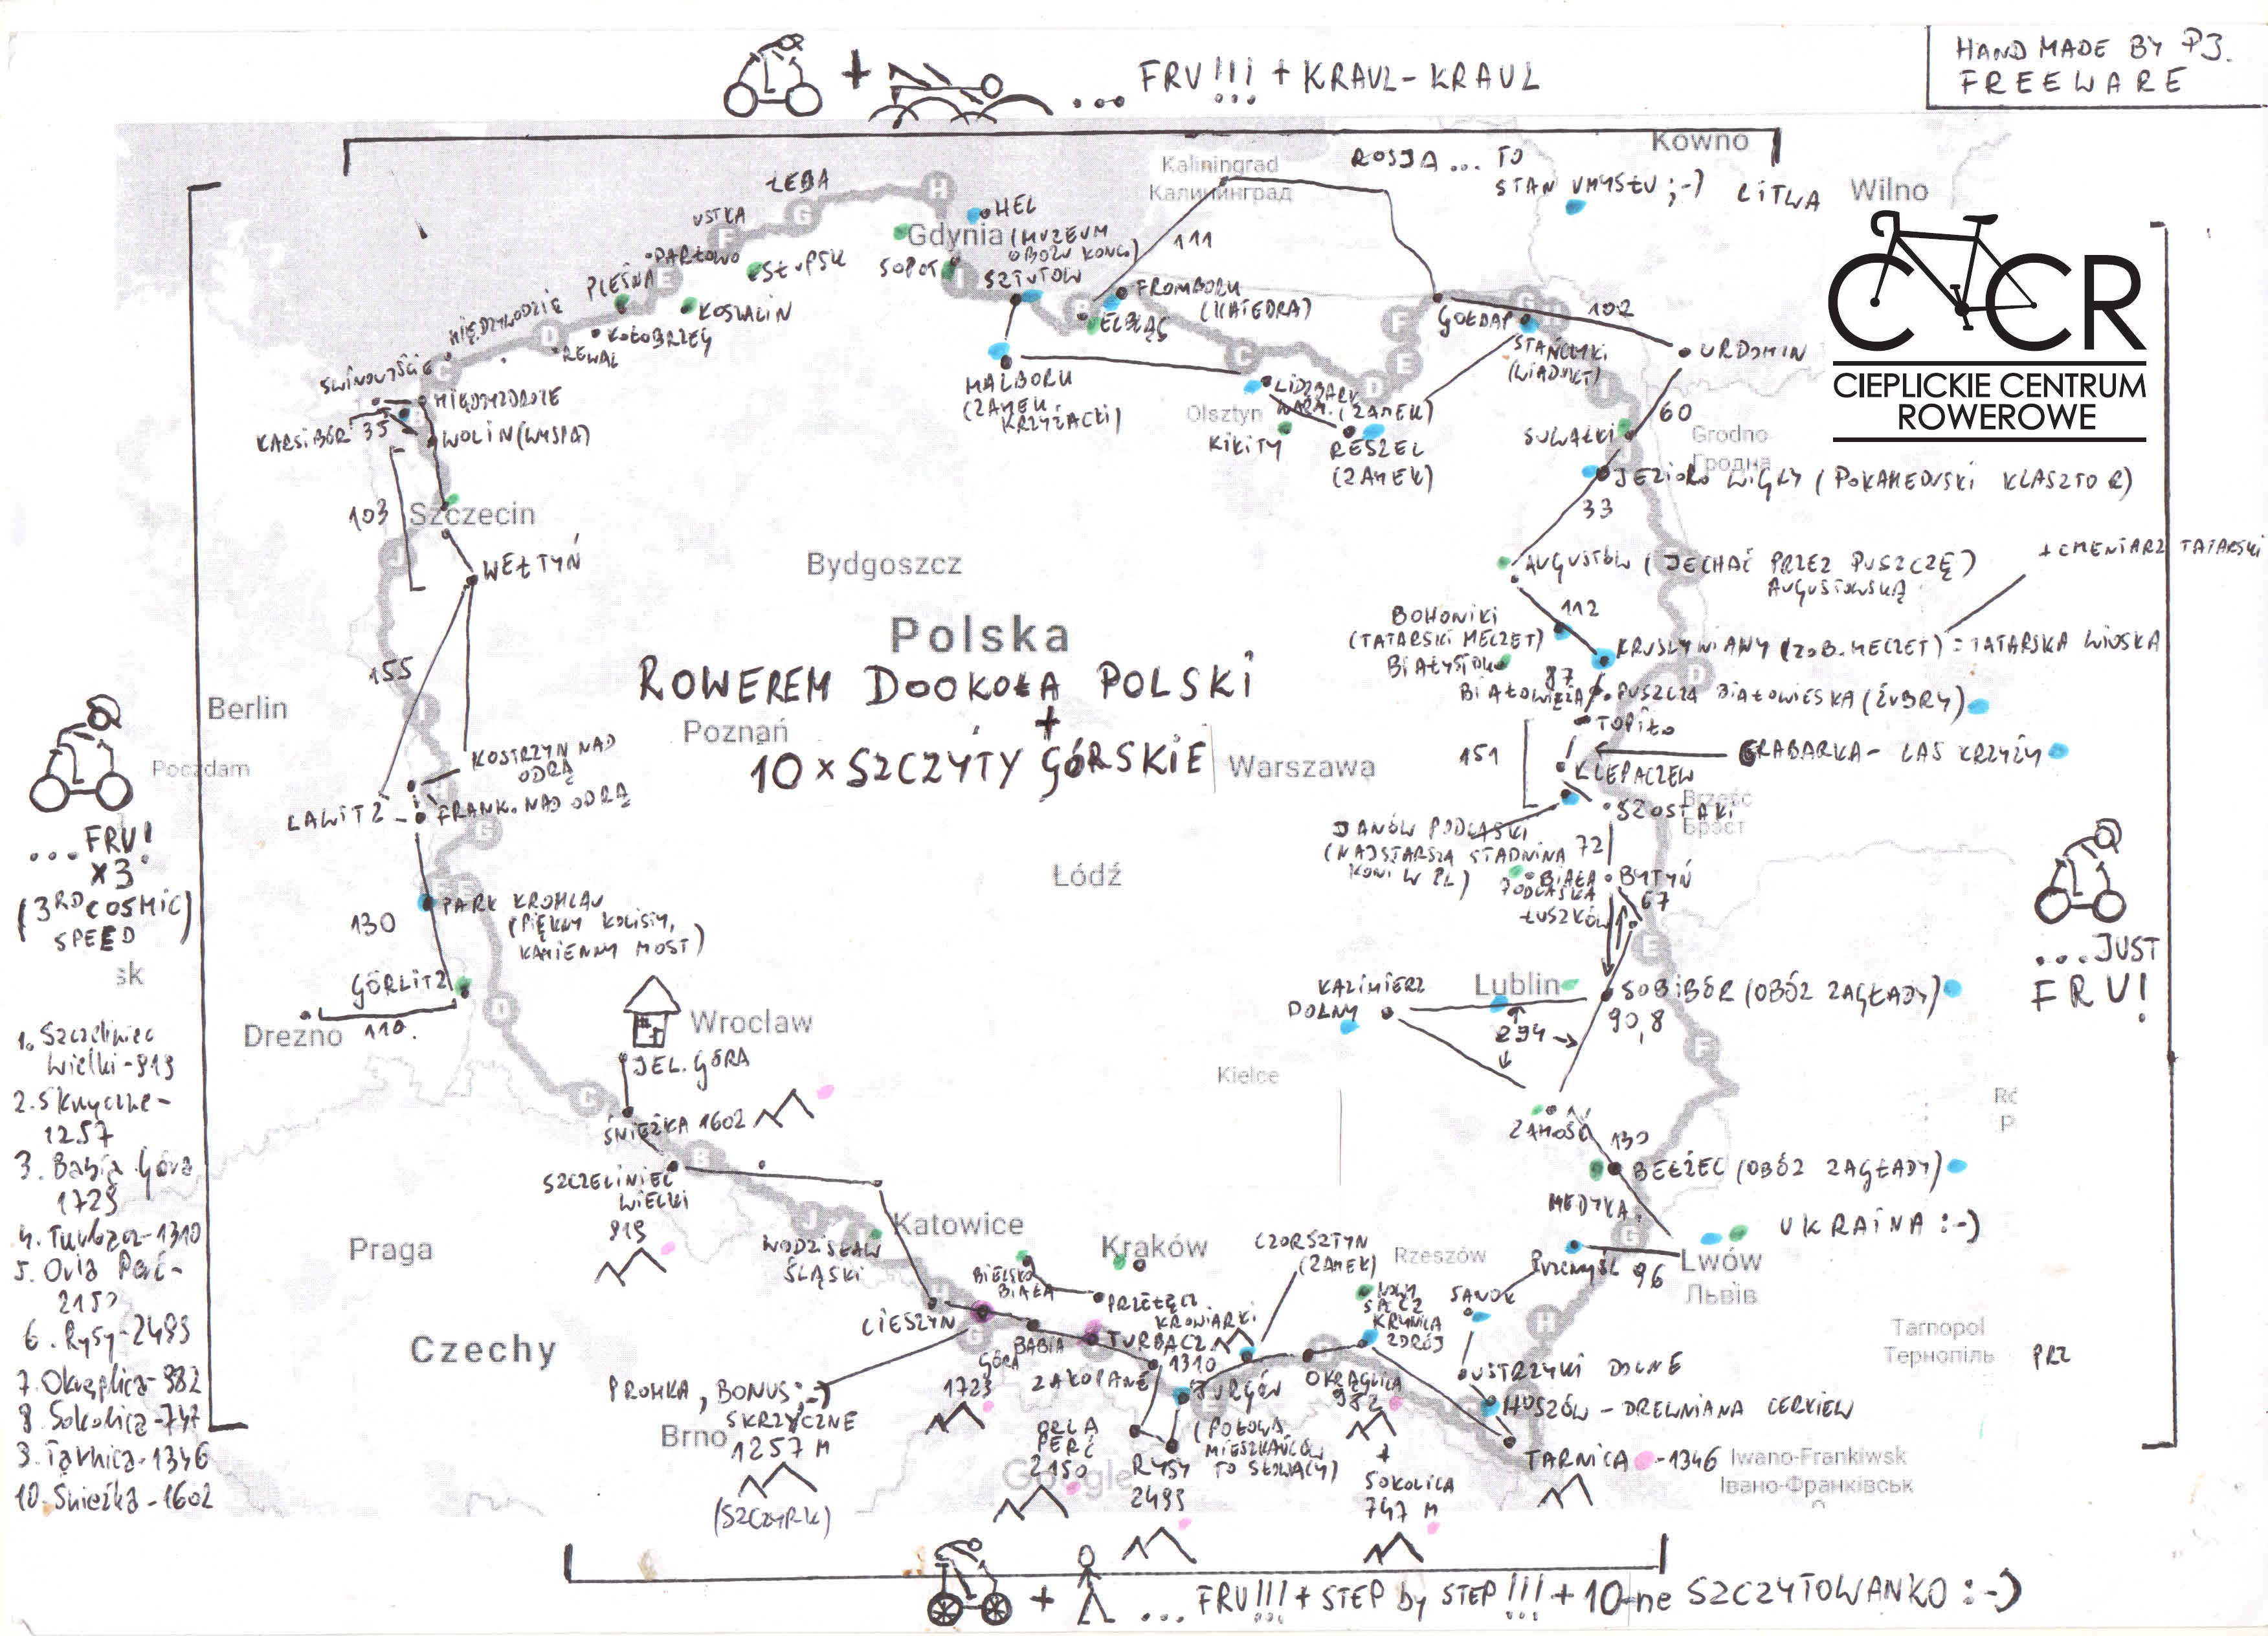 HAND MADE BY P3.
FREEWARE
... FRU!!! + KRAUL-KRAUL
Kowno
ROSJA... TO
STAN UMYSŁU ;-)
LITWA
Wilno
Kaliningrad
Калининград
ŁEBA
H
HEL
USTKA
G
F
Gdynia
(MUZEUM
OBOZU KONC.)
111
DARŁOWO
SŁUPSK
SOPOT
I
SZTUTOW
PLEŚNA
E
KOSZALIN
FROMBORK
(KATEDRA)
B
ELBLĄG
MIĘDZYWODZIE
D
KOŁOBRZEG
REWAL
F
GOŁDAP
G
H
102
STAŃCZYKI
(WIADUKT)
URDOMIN
C CR
CIEPLICKIE CENTRUM
ROWEROWE
ŚWINOUJŚCIE
C
MIĘDZYZDROJE
KARSIBÓR
35
B
WOLIN (WYSPA)
MALBORK
(ZAMEK
KRZYŻACKI)
C
D
E
LIDZBARK
WARM. (ZAMEK)
Olsztyn
KIKITY
RESZEL
(ZAMEK)
I
60
SUWAŁKI
J
Grodno
Гродна
JEZIORO WIGRY (POKAMEDUSKI KLASZTOR)
33
103
Szczecin
J
WEŁTYŃ
Bydgoszcz
AUGUSTÓW (JECHAĆ PRZEZ PUSZCZĘ)
AUGUSTOWSKĄ
+ CMENTARZ TATARSKI
BOHONIKI
(TATARSKI MECZET)
112
KRUSZYNIANY (ZOB. MECZET) = TATARSKA WIOSKA
BIAŁYSTOK
87
D
BIAŁOWIEŻA
PUSZCZA BIAŁOWIESKA (ŻUBRY)
TOPIŁO
Polska
ROWEREM DOOKOŁA POLSKI
+
10 x SZCZYTY GÓRSKIE
155
I
Berlin
Poczdam
Poznań
Warszawa
151
GRABARKA - LAS KRZYŻY
KLEPACZEW
SZOSTAKI
Brześć
Брэст
KOSTRZYN NAD
ODRĄ
H
LAWITZ
FRANK. NAD ODRĄ
G
JANÓW PODLASKI
(NAJSTARSZA STADNINA
KONI W PL)
72
BIAŁA
PODLASKA
BYTYŃ
67
ŁUSZKÓW
E
... FRU!
x3
(3RD COSMIC)
SPEED
Łódź
F
E
PARK KROMLAU
(PIĘKNY KOLISTY,
KAMIENNY MOST)
130
GÖRLITZ
D
Drezno
110
sk
... JUST
FRU!
KAZIMIERZ
DOLNY
Lublin
SOBIBÓR (OBÓZ ZAGŁADY)
90,8
294
F
Kielce
Wrocław
JEL. GÓRA
C
ŚNIEŻKA 1602
ZAMOŚĆ
130
BEŁŻEC (OBÓZ ZAGŁADY)
1. Szczeliniec
Wielki - 919
2. Skrzyczne -
1257
3. Babia Góra
1723
4. Turbacz - 1310
5. Orla Perć -
2150
6. Rysy - 2499
7. Okrąglica - 982
8. Sokolica - 747
9. Tarnica - 1346
10. Śnieżka - 1602
B
SZCZELINIEC
WIELKI
919
MEDYKA
G
UKRAINA :-)
Lwów
Львів
PRZEMYŚL
96
Praga
J
I
Katowice
WODZISŁAW
ŚLĄSKI
Kraków
CZORSZTYN
(ZAMEK)
Rzeszów
SANOK
BIELSKO
BIAŁA
PRZEŁĘCZ
KROWIARKI
NOWY
SĄCZ
KRYNICA
ZDRÓJ
H
Tarnopol
Тернопіль
PRZ
Czechy
CIESZYN
H
G
BABIA
GÓRA
1723
TURBACZ
1310
ZAKOPANE
OKRĄGLICA
982
USTRZYKI DOLNE
HOSZÓW - DREWNIANA CERKIEW
PROMKA, BONUS ;-)
SKRZYCZNE
1257 M
(SZCZYRK)
Brno
ORLA
PERĆ
2150
Google
RYSY
2499
E
JURGÓW
(POŁOWA
MIESZKAŃCÓW
TO SŁOWACY)
+
SOKOLICA
747 M
TARNICA - 1346
Iwano-Frankiwsk
Івано-Франківськ
... FRU!!! + STEP by STEP!!! + 10-ne SZCZYTOWANKO :-)